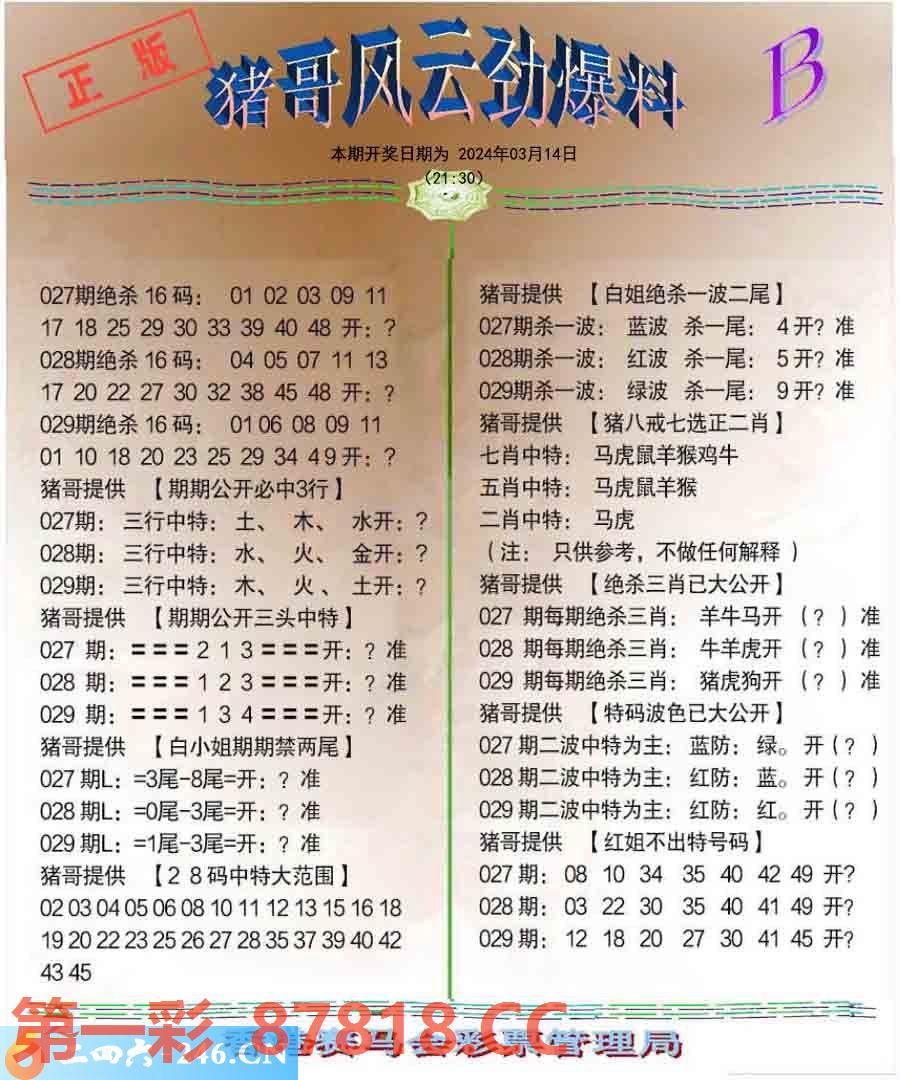 正版
猪哥风云劲爆料
B
本期开奖日期为 2024年03月14日
(21:30)
027期绝杀16码： 01 02 03 09 11
17 18 25 29 30 33 39 40 48 开：?
028期绝杀16码： 04 05 07 11 13
17 20 22 27 30 32 38 45 48 开：?
029期绝杀16码： 01 06 08 09 11
01 10 18 20 23 25 29 34 49开：?
猪哥提供 【期期公开必中3行】
027期：三行中特：土、 木、 水开：?
028期：三行中特：水、 火、 金开：?
029期：三行中特：木、 火、 土开：?
猪哥提供 【期期公开三头中特】
027 期：===213===开：? 准
028 期：===123===开：? 准
029 期：===134===开：? 准
猪哥提供 【白小姐期期禁两尾】
027期L：=3尾-8尾=开：? 准
028期L：=0尾-3尾=开：? 准
029期L：=1尾-3尾=开：? 准
猪哥提供 【28码中特大范围】
02 03 04 05 06 08 10 11 12 13 15 16 18
19 20 22 23 25 26 27 28 35 37 39 40 42
43 45
猪哥提供 【白姐绝杀一波二尾】
027期杀一波： 蓝波 杀一尾： 4开? 准
028期杀一波： 红波 杀一尾： 5开? 准
029期杀一波： 绿波 杀一尾： 9开? 准
猪哥提供 【猪八戒七选正二肖】
七肖中特： 马虎鼠羊猴鸡牛
五肖中特： 马虎鼠羊猴
二肖中特： 马虎
（注： 只供参考，不做任何解释）
猪哥提供 【绝杀三肖已大公开】
027 期每期绝杀三肖： 羊牛马开 （?）准
028 期每期绝杀三肖： 牛羊虎开 （?）准
029 期每期绝杀三肖： 猪虎狗开 （?）准
猪哥提供 【特码波色已大公开】
027期二波中特为主：蓝防：绿。开(?)
028期二波中特为主：红防：蓝。开(?)
029期二波中特为主：红防：红。开(?)
猪哥提供 【红姐不出特号码】
027期： 08 10 34 35 40 42 49 开?
028期： 03 22 30 35 40 41 49 开?
029期： 12 18 20 27 30 41 45 开?
第一彩 87818.CC
二四六 246.CN
香港赛马会彩票管理局